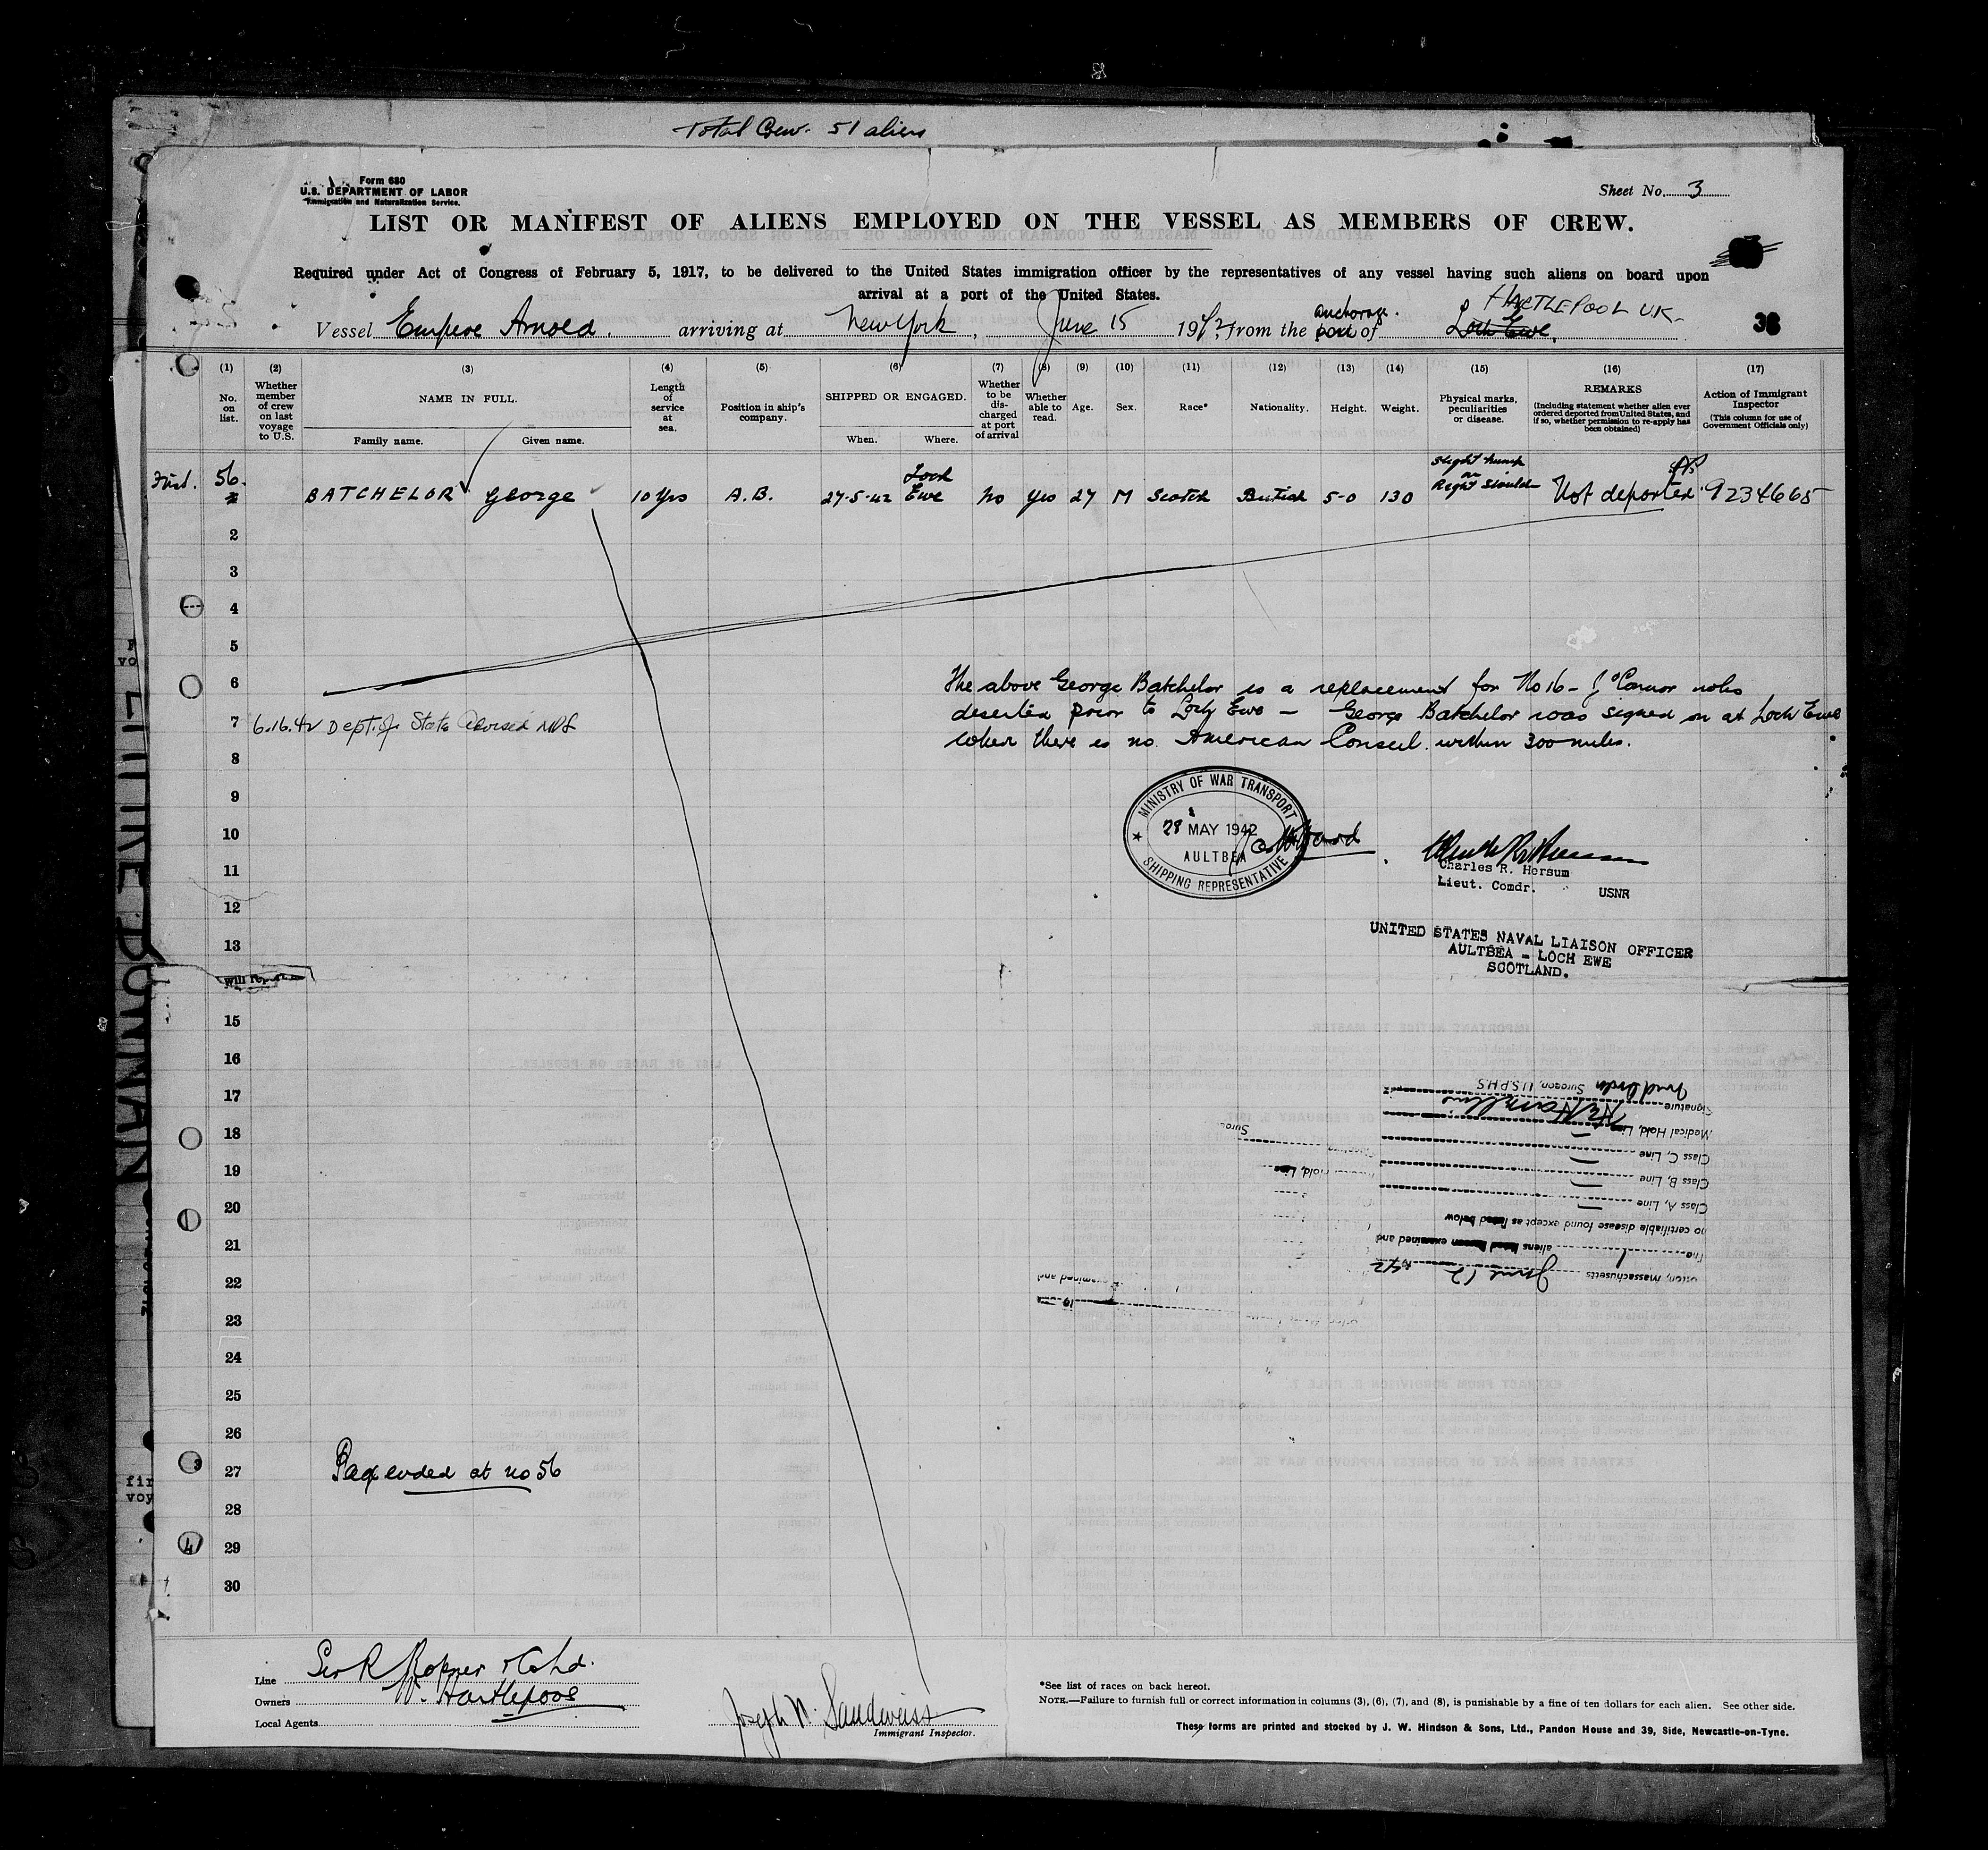 Total Crew. 51 aliens
Form 680
U.S. DEPARTMENT OF LABOR
Immigration and Naturalization Service.
Sheet No. 3
LIST OR MANIFEST OF ALIENS EMPLOYED ON THE VESSEL AS MEMBERS OF CREW.
Required under Act of Congress of February 5, 1917, to be delivered to the United States immigration officer by the representatives of any vessel having such aliens on board upon
arrival at a port of the United States.
HARTLEPOOL UK-
Vessel Empire Arnold. arriving at New York, June 15 1942, from the anchorage. port of Loch Ewe.
38
(1) (2) (3) (4) (5) (6) (7) (8) (9) (10) (11) (12) (13) (14) (15) (16) (17)
No. on list.
Whether member of crew on last voyage to U.S.
NAME IN FULL.
Family name. Given name.
Length of service at sea.
Position in ship's company.
SHIPPED OR ENGAGED.
When. Where.
Whether to be discharged at port of arrival
Whether able to read.
Age.
Sex.
Race*
Nationality.
Height.
Weight.
Physical marks, peculiarities or disease.
REMARKS
(Including statement whether alien ever ordered deported from United States, and if so, whether permission to re-apply has been obtained)
Action of Immigrant Inspector
(This column for use of Government Officials only)
First. 56. BATCHELOR George 10 Yrs A.B. 27-5-42 Loch Ewe No Yes 27 M Scotch British 5-0 130 Slight hump on Right Shoulder Not deported. 9234665
2
3
4
5
6
The above George Batchelor is a replacement for No 16 - J O'Connor who
deserted prior to Loch Ewe - George Batchelor was signed on at Loch Ewe
7
6.16.42 Dept. of State advised
where there is no American Consul within 300 miles.
8
9
MINISTRY OF WAR TRANSPORT
28 MAY 1942
AULTBEA
SHIPPING REPRESENTATIVE
10
11
Charles R. Hersum
Lieut. Comdr. USNR
12
13
UNITED STATES NAVAL LIAISON OFFICER
AULTBEA - LOCH EWE
SCOTLAND.
15
16
17
18
19
20
21
22
23
24
25
26
27
28
29
30
Boston, Massachusetts June 12 1942
The 1 aliens examined and
no certifiable disease found except as listed below
Class A, Line
Class B, Line
Class C, Line
Medical Hold, Line
Signature
Surgeon, U.S.P.H.S
Page ended at no 56
Line Sir R Ropner & Co Ltd.
Owners W. Hartlepool
Local Agents
Joseph N. Sandweiss
Immigrant Inspector.
*See list of races on back hereof.
NOTE.—Failure to furnish full or correct information in columns (3), (6), (7), and (8), is punishable by a fine of ten dollars for each alien. See other side.
These forms are printed and stocked by J. W. Hindson & Sons, Ltd., Pandon House and 39, Side, Newcastle-on-Tyne.